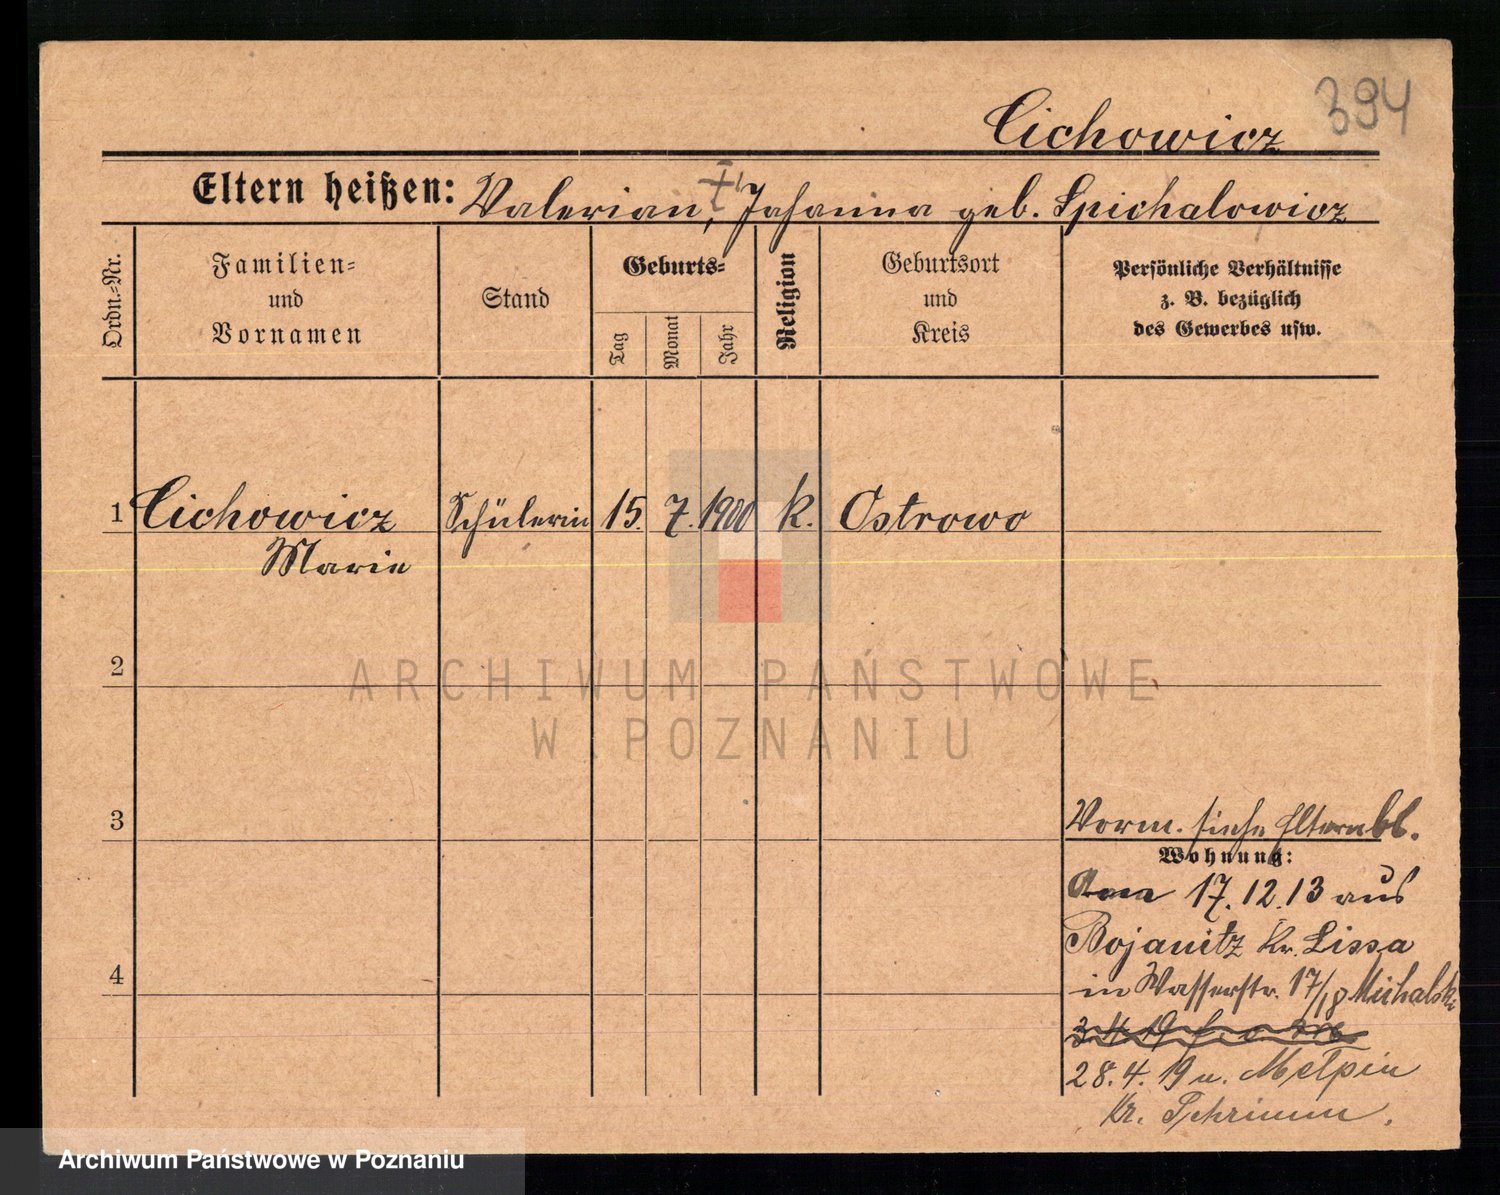 394
Cichowicz
Eltern heißen: Valerian, Johanna geb. Spichalowicz
Ordn.-Nr.
Familien-
und
Vornamen
Stand
Geburts-
Tag
Monat
Jahr
Religion
Geburtsort
und
Kreis
Persönliche Verhältnisse
z. B. bezüglich
des Gewerbes usw.
1 Cichowicz Schülerin 15. 7. 1900 k. Ostrowo
Marie
2
ARCHIWUM PAŃSTWOWE
W POZNANIU
3
Vorm. siehe Elternbl.
Wohnung:
Am 17.12.13 aus
Bojanitz Kr. Lissa
4
in Wasserstr. 17/18 Michalski
28.4.19 n. Metpin
Kr. Schrimm.
Archiwum Państwowe w Poznaniu